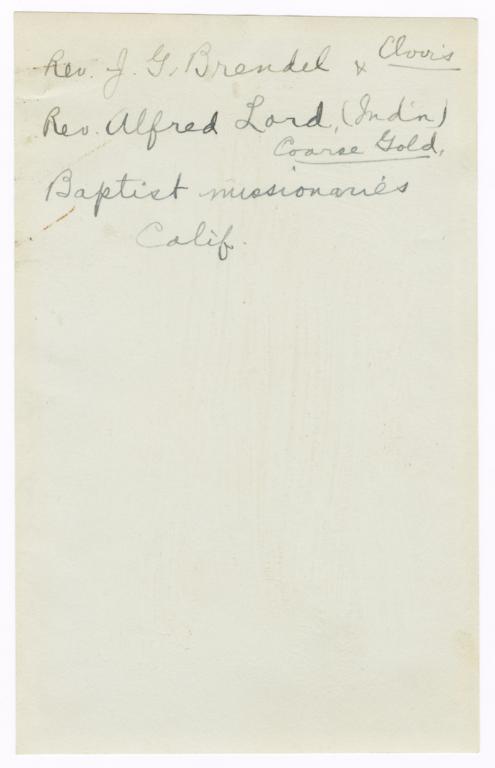 Rev. J. G. Brendel x Clovis
Rev. Alfred Lord, (Ind'n)
Coarse Gold,
Baptist missionaries
Calif.